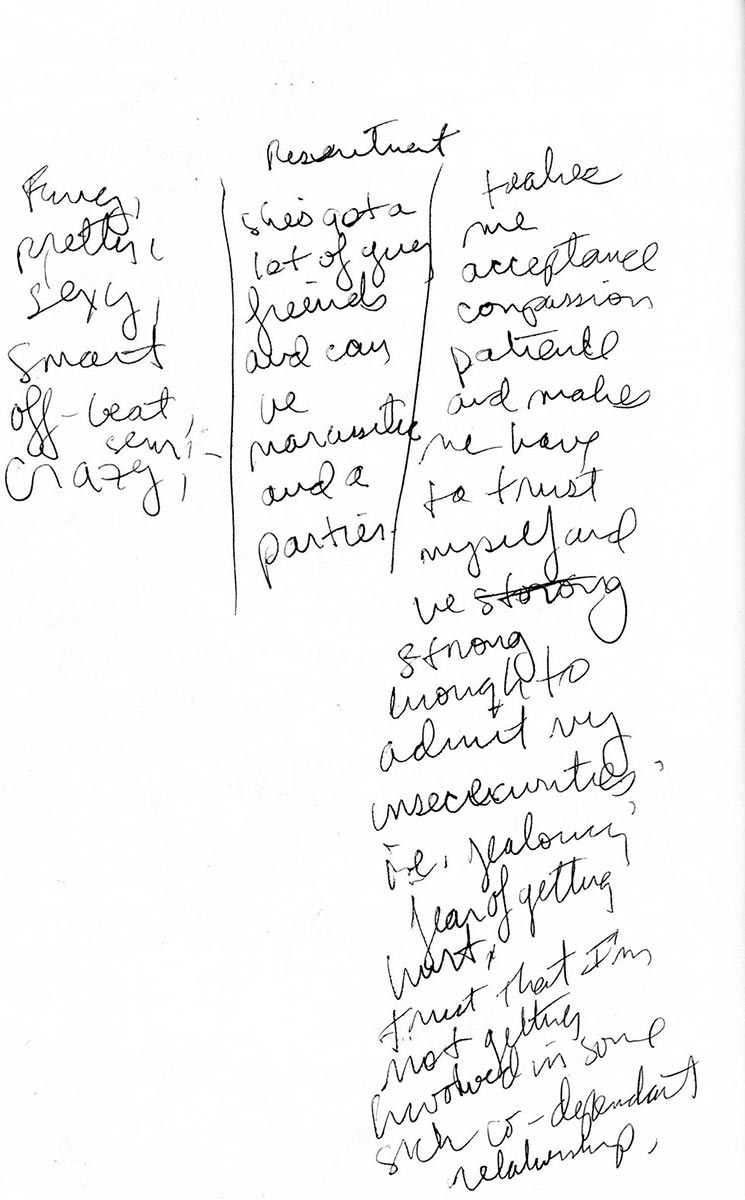 Resentment
Funny,
pretty,
sexy,
smart
off-beat,
semi-
crazy,
she's got a
lot of guy
freinds
and can
be
narcissitic
and a
parties.
teahes
me
acceptance
compassion
patience
and makes
me have
to trust
myself and
be strong
strong
enough to
admit my
insecurities,
i.e. jealousy,
fear of getting
hurt,
trust that I'm
not getting
involved in some
sick co-dependant
relationship,